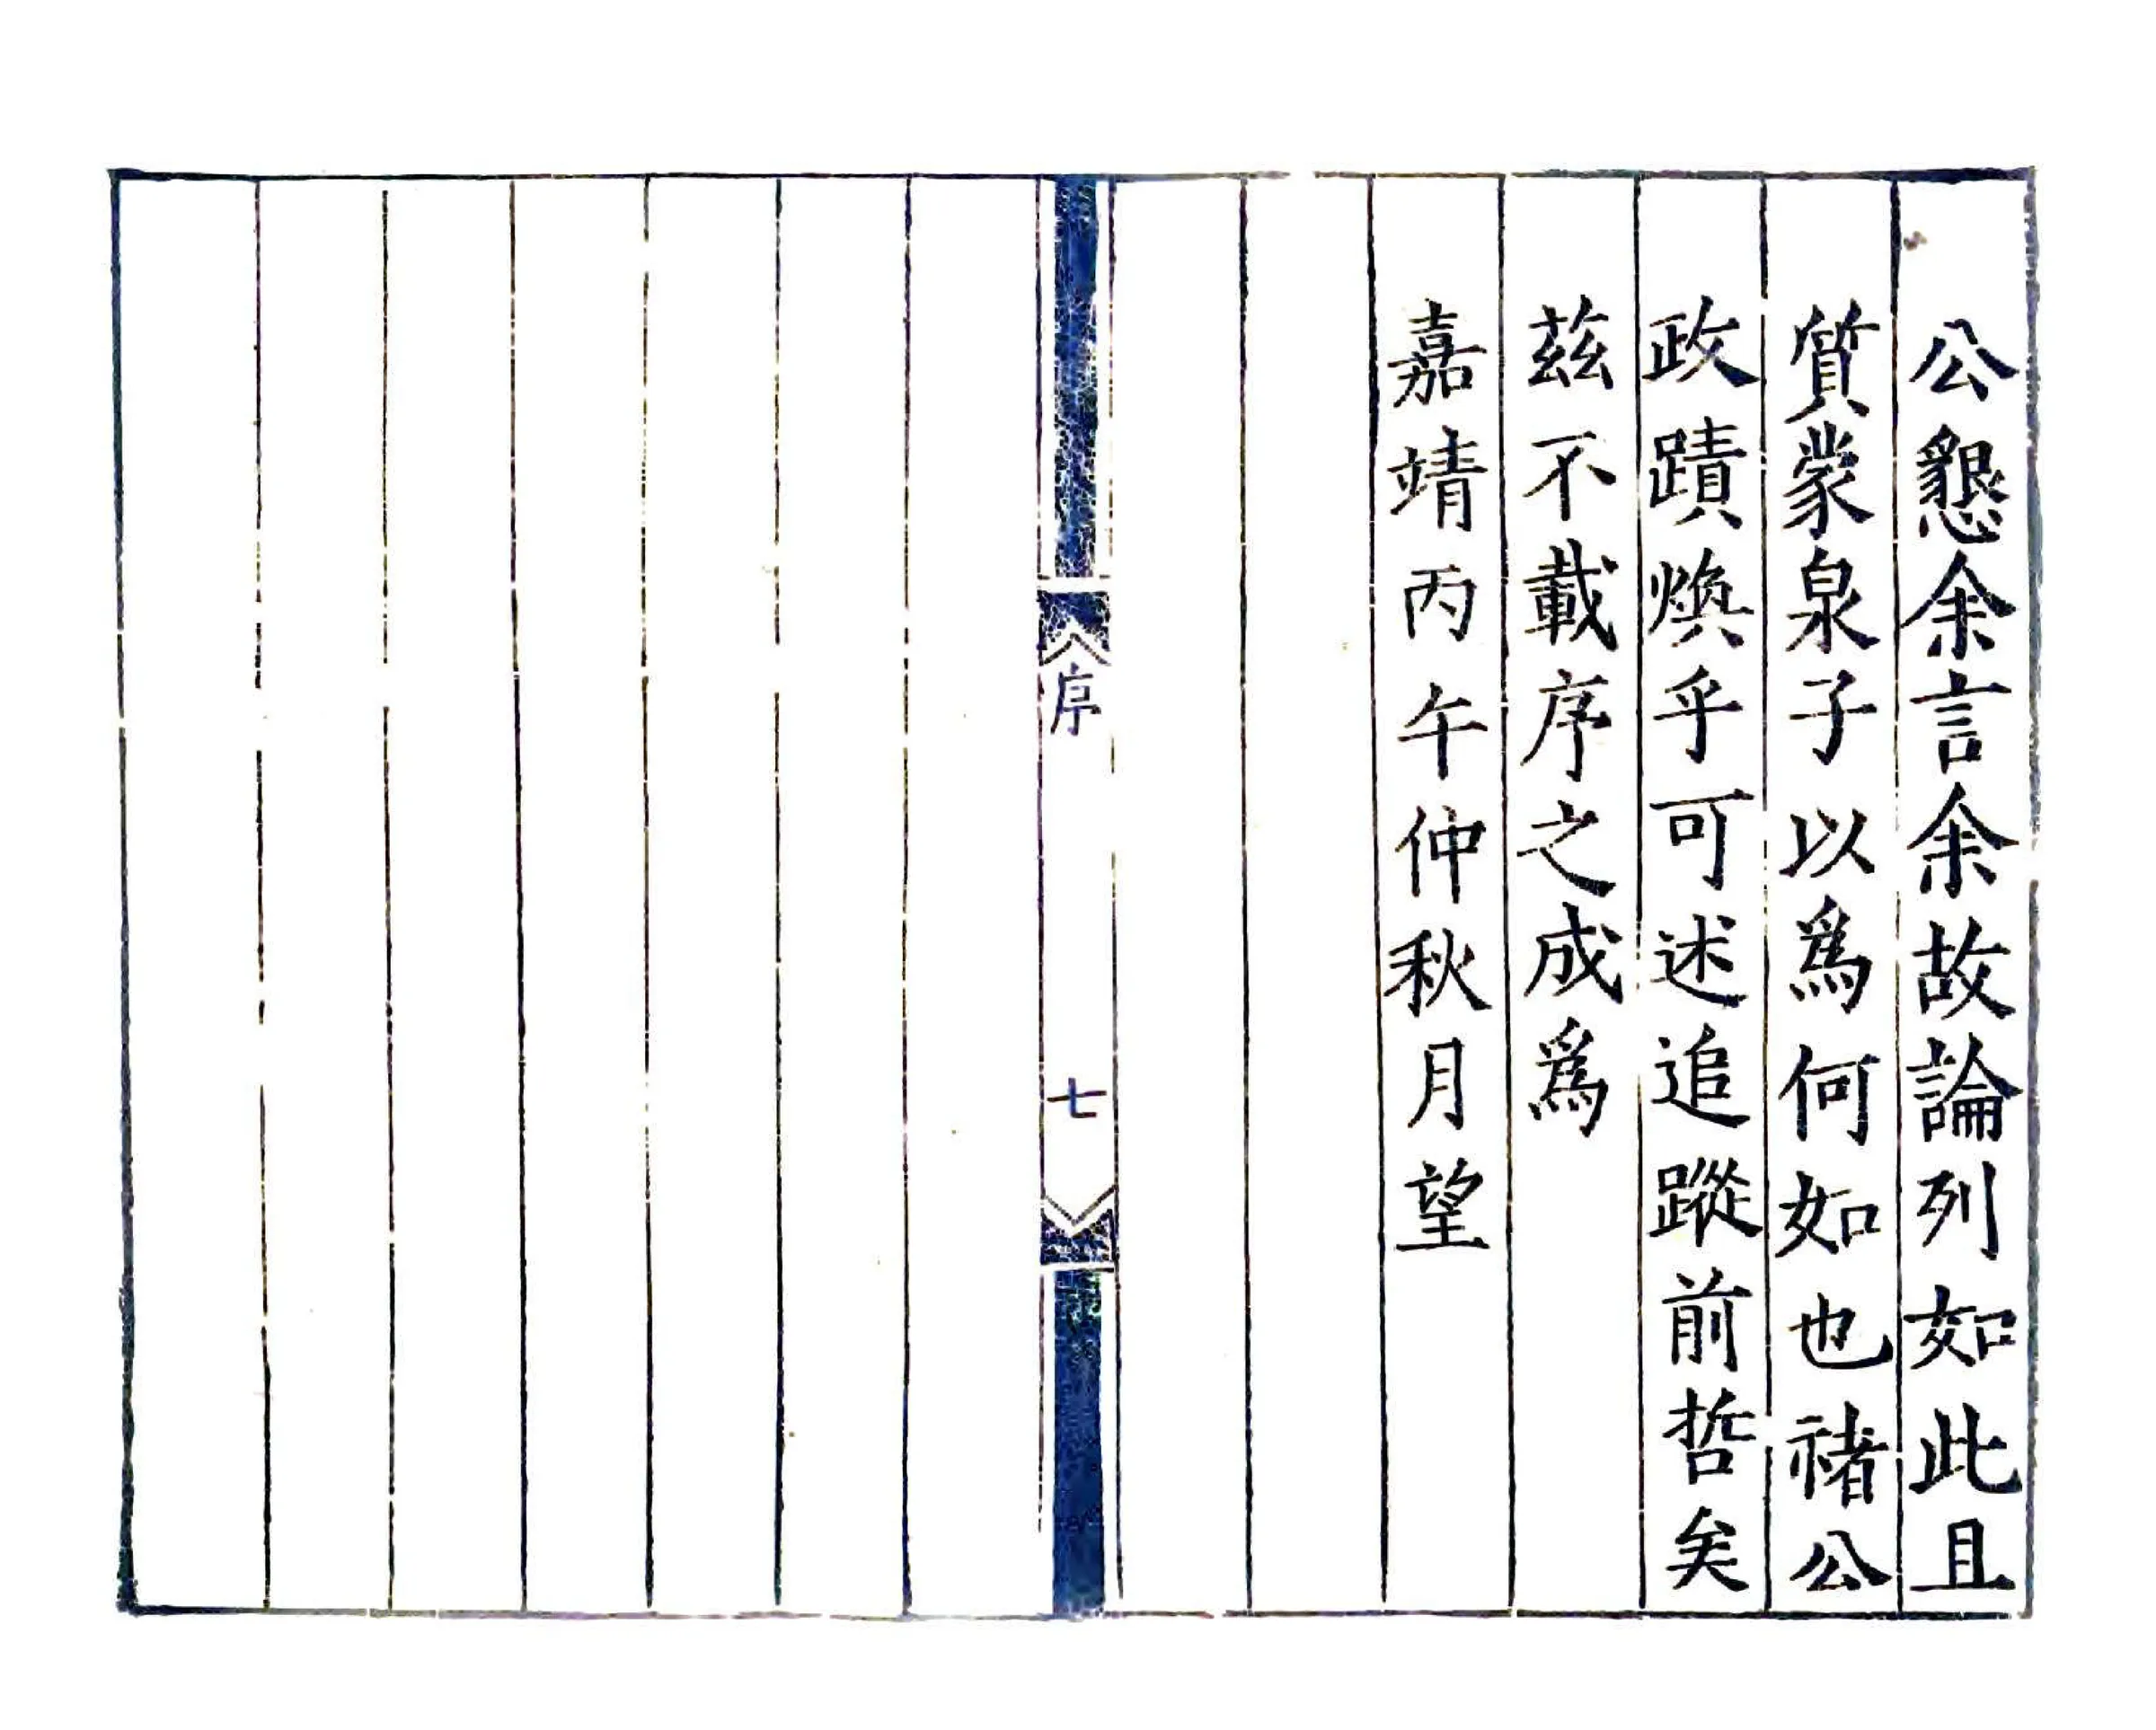 公懇余言余故論列如此且
質蒙泉子以爲何如也禇公
政蹟煥乎可述追蹤前哲矣
茲不載序之成爲
嘉靖丙午仲秋月望
序
七